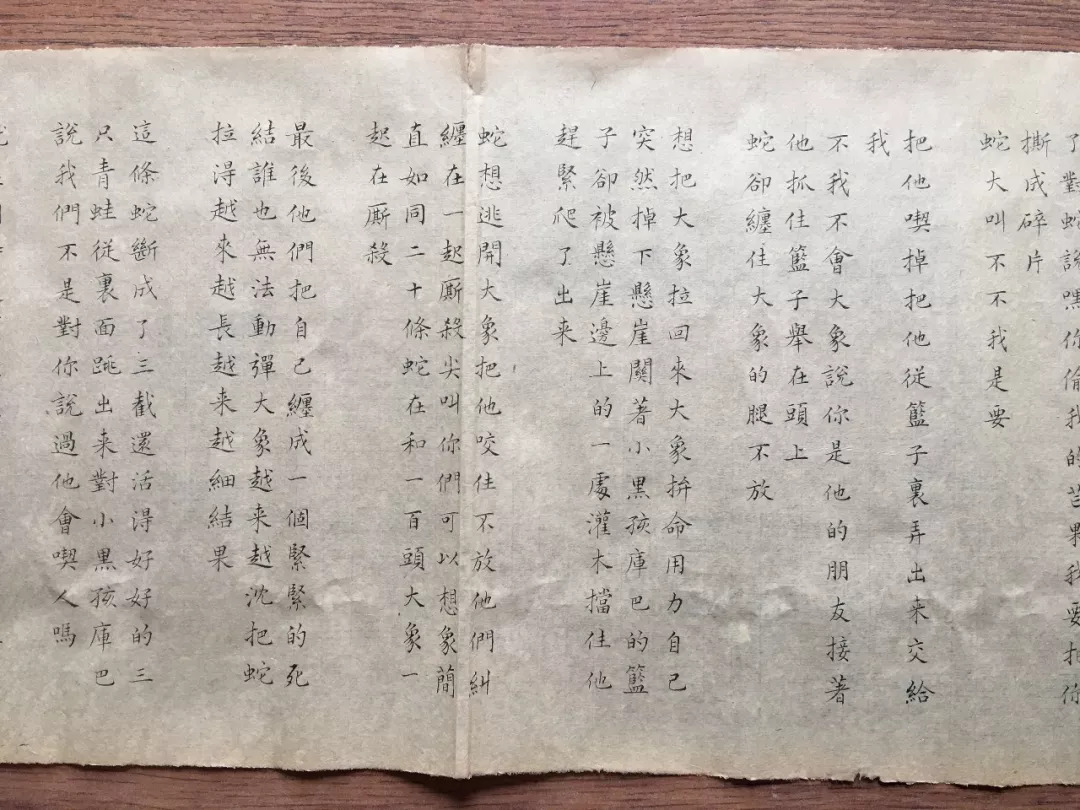 了對蛇說嘿你偷我的芒果我要把你
撕成碎片
蛇大叫不不我是要
把他喫掉把他従籃子裏弄出来交給
我
不我不會大象說你是他的朋友接著
他抓住籃子舉在頭上
蛇卻纏住大象的腿不放
想把大象拉回來大象拚命用力自己
突然掉下懸崖關著小黒孩庫巴的籃
子卻被懸崖邊上的一處灌木擋住他
趕緊爬了出来
蛇想逃開大象把他咬住不放他們糾
纏在一起厮殺尖叫你們可以想象簡
直如同二十條蛇在和一百頭大象一
起在厮殺
最後他們把自己纏成一個緊緊的死
結誰也無法動彈大象越来越沈把蛇
拉得越來越長越来越細結果
這條蛇斷成了三截還活得好好的三
只青蛙従裏面跳出来對小黒孩庫巴
說我們不是對你說過他會喫人嗎